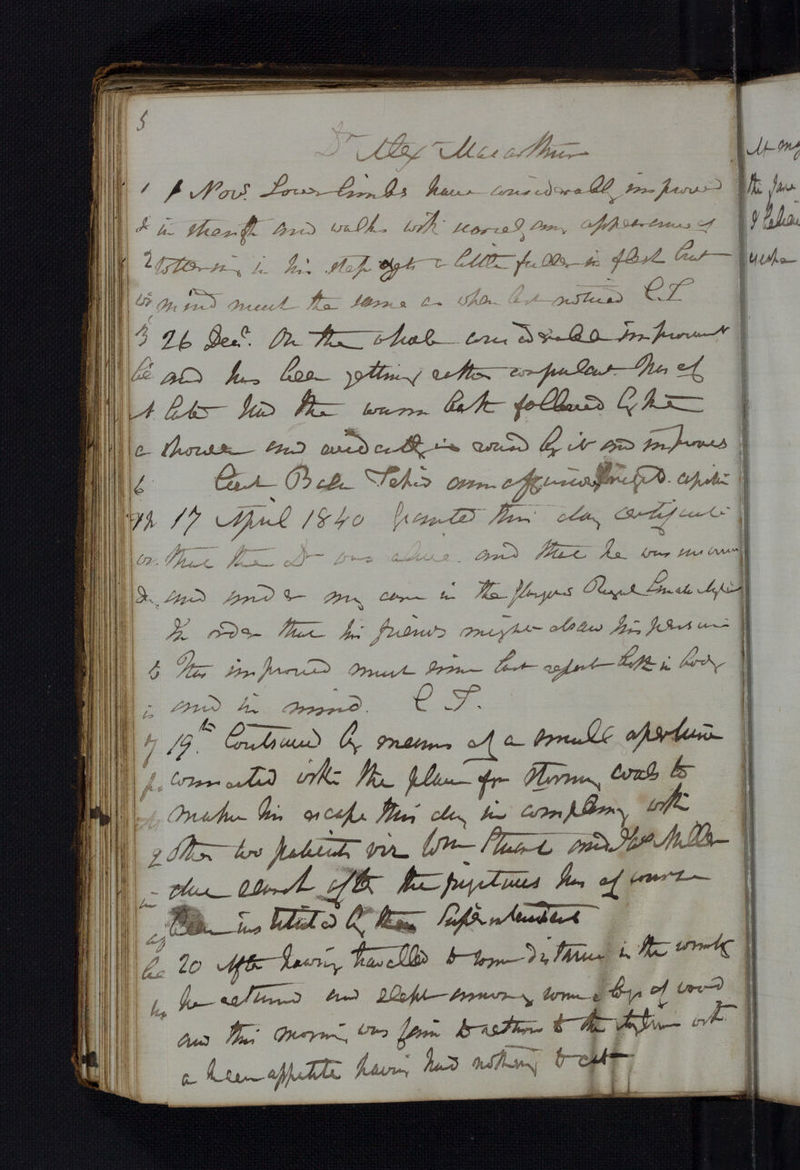 5
Dr Alexr Macarthur
1 Novr. Lower limbs have considerably improved
in strength and walks with scarcely any appearance of
tottering in his step a little fuller in flesh but
mind much the same as when last noticed C.T.
26 Decr. On the whole considerable improvement
and has been getting rather corpulent. Has of
late had the warm bath followed by the
shower and evidently is round by it and improves
17 April 1840 Granted this day certificate
that the Dr was alive and that he was insane
and under my care in the Glasgow Royal Lunatic
In order that his friends might draw his pension
Has improved much since last report both in body
and in mind. C T.
19th Contrived by means of a small aperture
connected with the place for storing coals to
make his escape this day in company with
other two patients viz Wm Stuart and Jas Miller
due search after the fugitives has of course
been instituted by the Superintendent
20 After having travelled to some distance in the country
he returned and slept among some logs of wood
and this morning was fain to return to the Asylum with
a keen appetite having had nothing to eat